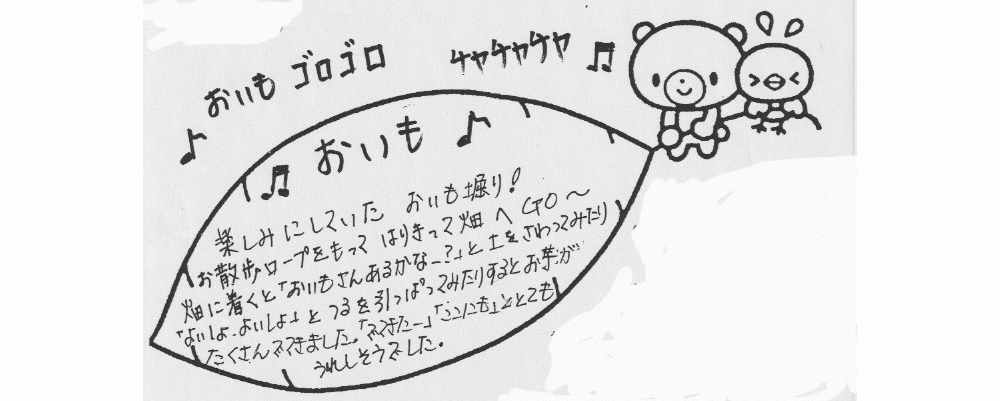 おいも ゴロゴロ チャチャチャ
おいも
楽しみにしていた おいも掘り!
お散歩ロープをもって はりきって畑へGO〜
畑に着くと「おいもさんあるかなー?」と土をさわってみたり
「よいしょ.よいしょ」とつるを引っぱってみたりするとお芋が
たくさんでてきました。「でてきたー」「ここにも」ととても
うれしそうでした。